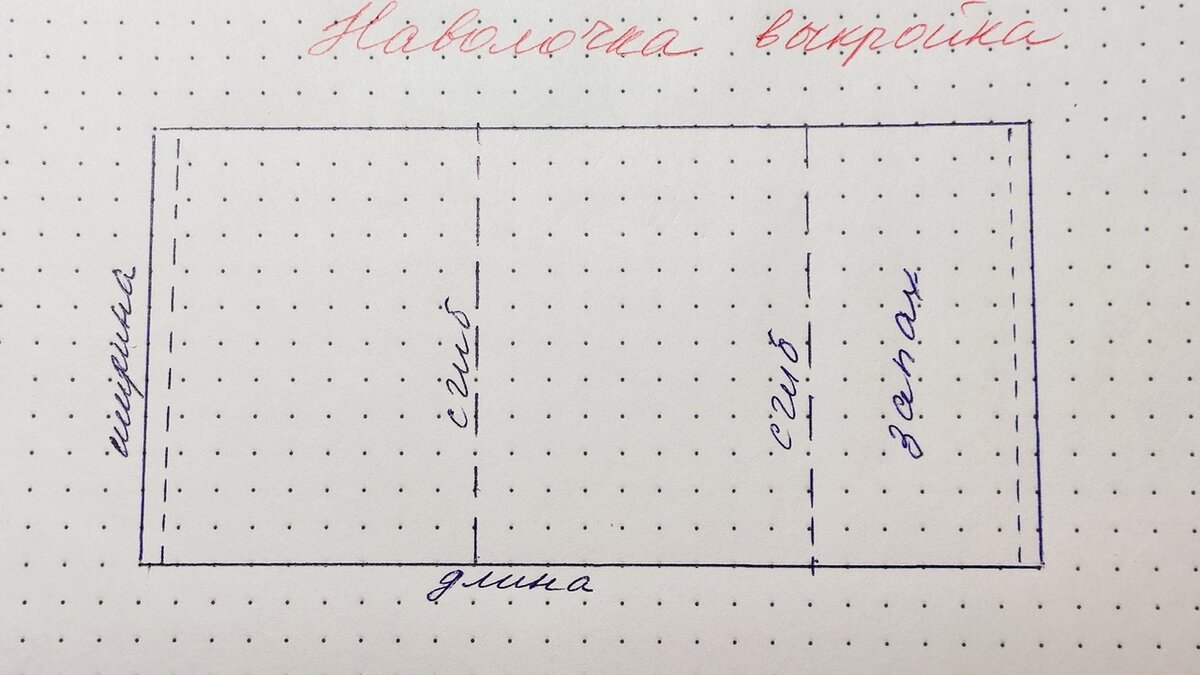 Наволочка выкройка
ширина
сгиб
сгиб
запах
длина